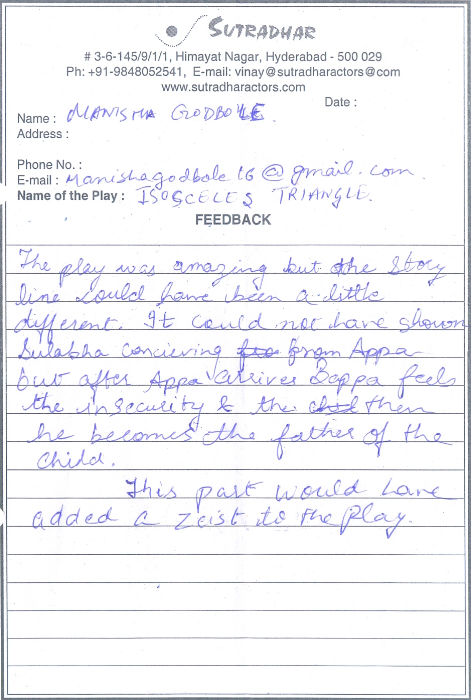 SUTRADHAR
# 3-6-145/9/1/1, Himayat Nagar, Hyderabad - 500 029
Ph: +91-9848052541, E-mail: vinay@sutradharactors@com
www.sutradharactors.com
Date :
Name : MANISHA GODBOLE.
Address :
Phone No. :
E-mail : Manishagodbole16@gmail.com.
Name of the Play : ISOSCELES TRIANGLE.
FEEDBACK
The play was amazing but the Story
line could have been a little
different. It could not have shown
Sulabha concieving from Appa
but after Appa arrives Bappa feels
the insecurity & the then
he becomes the father of the
child.
This part would have
added a Zeist to the Play.